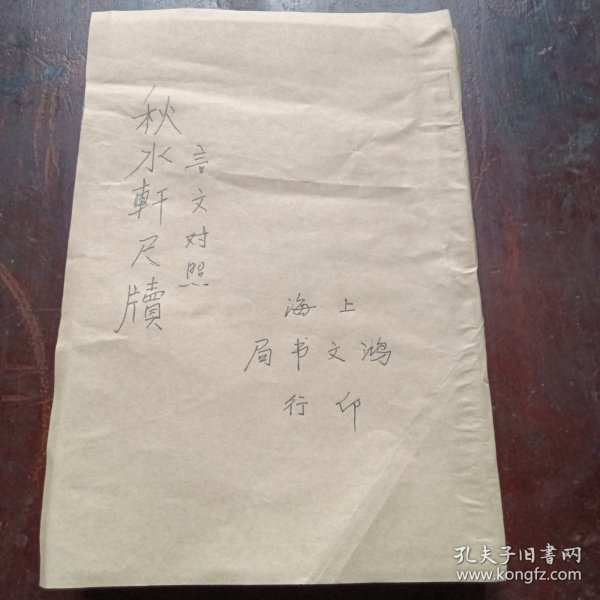 秋水軒尺牘
言文对照
上海
鸿文书局
印行
孔夫子旧書网
www.kongfz.com